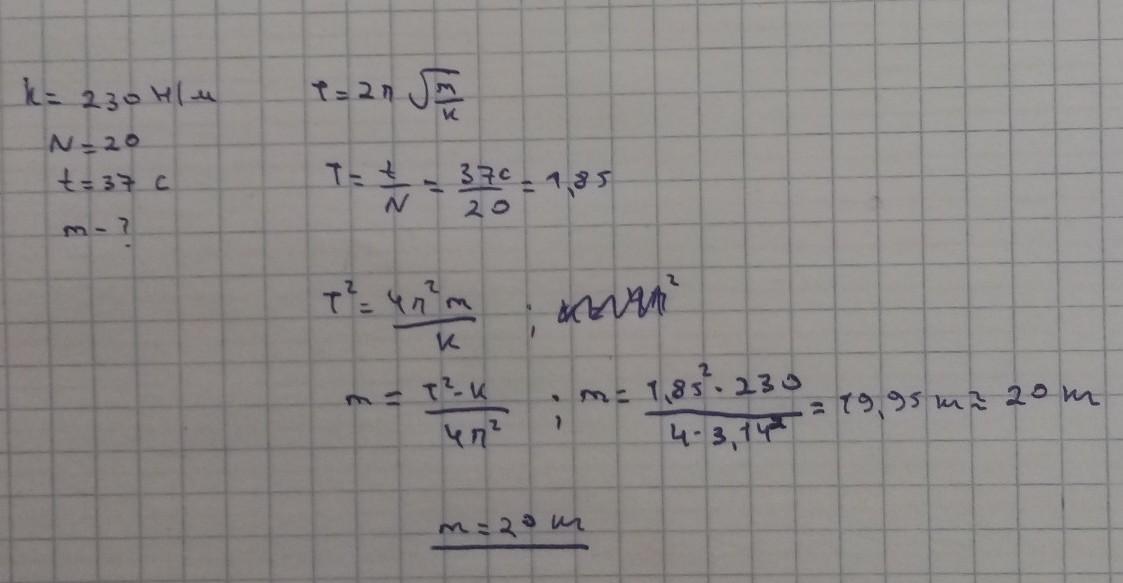 k = 230 Н/м
N = 20
t = 37 с
m - ?
T = 2π √(m/k)
T = t/N = 37с/20 = 1,85
T² = 4π²m/k ;
m = T²·k/4π² ; m = 1,85²·230/4·3,14² = 19,95 м ≈ 20 м
m = 20 м